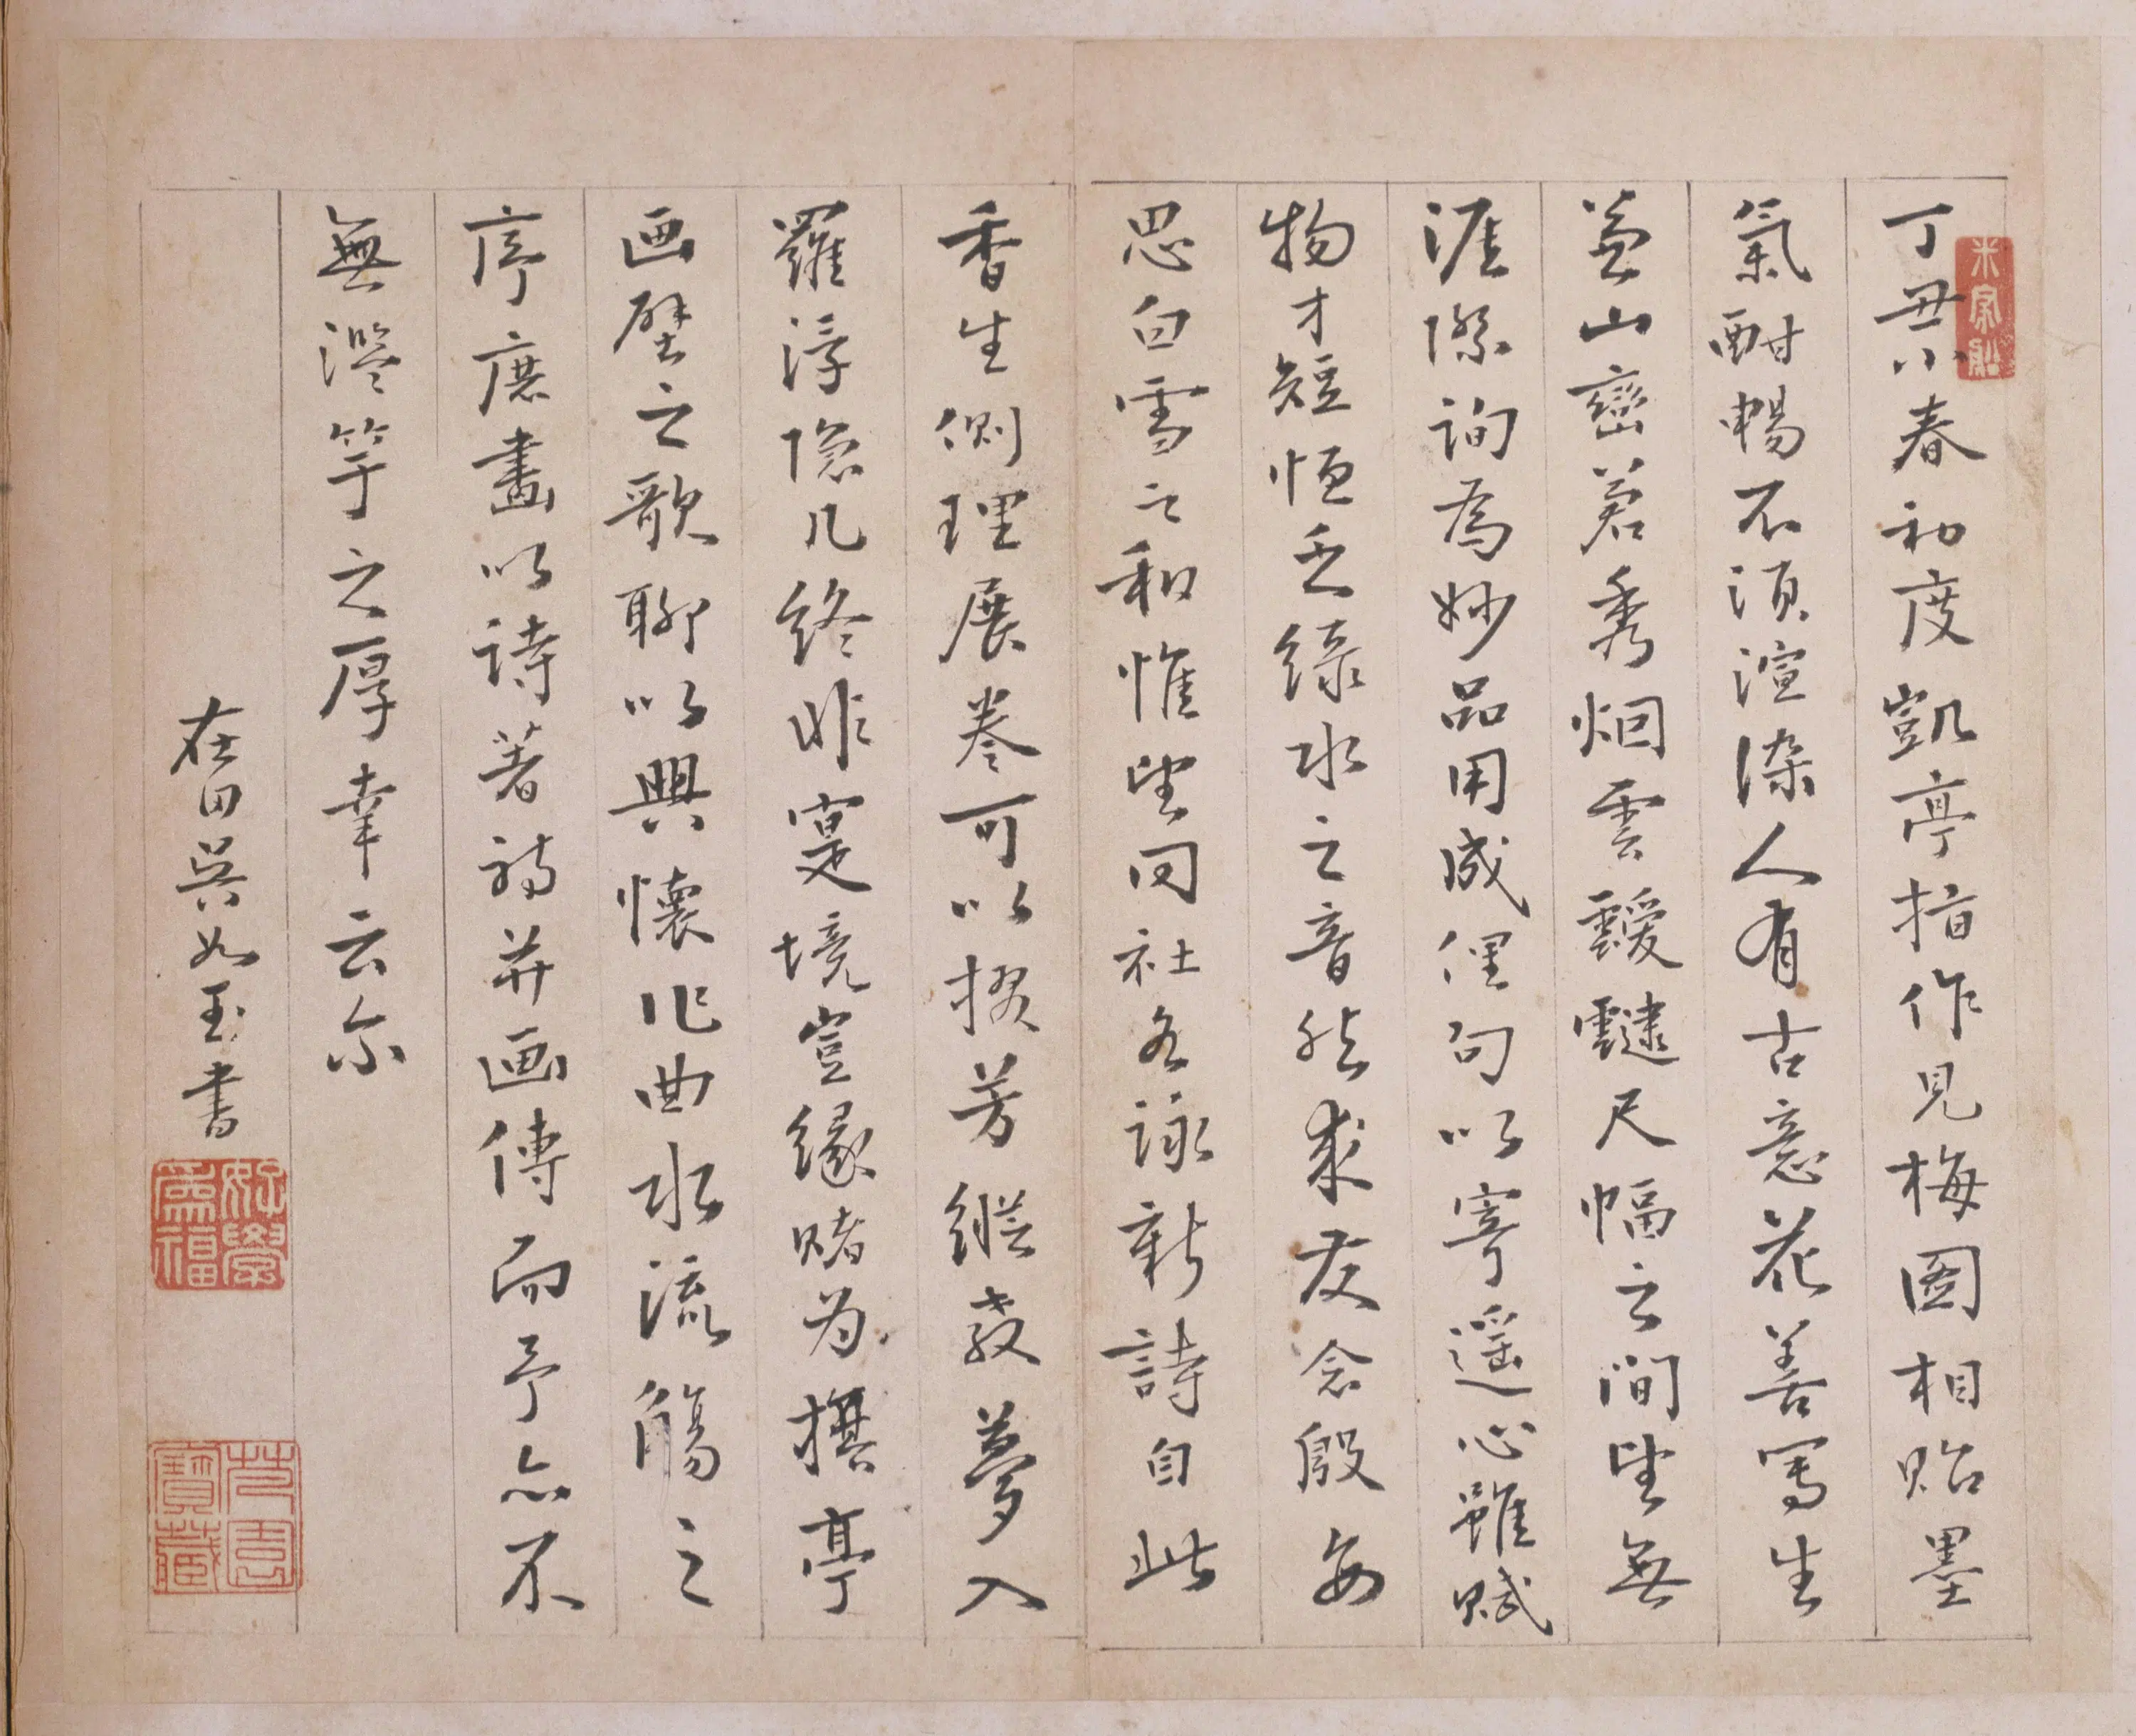 丁丑小春初度凱亭指作見梅圖相貽墨
氣酣暢不須渲染人有古意花善寫生
益山巒蒼秀烟雲靉靆尺幅之間望無
涯際詢為妙品用成俚句以寄遥心雖賦
物才短恒乏綠水之音然求友念殷每
思白雪之和惟望同社各詠新詩自此
香生側理展卷可以掇芳縱教夢入
羅浮隐几終非寔境豈緣賭为撰亭
画壁之歌聊以興懷作曲水流觴之
序庶畫以詩著詩并画傳而予亦不
無濫竽之厚幸云尔
在田吳如玉書
好學為福
寶藏